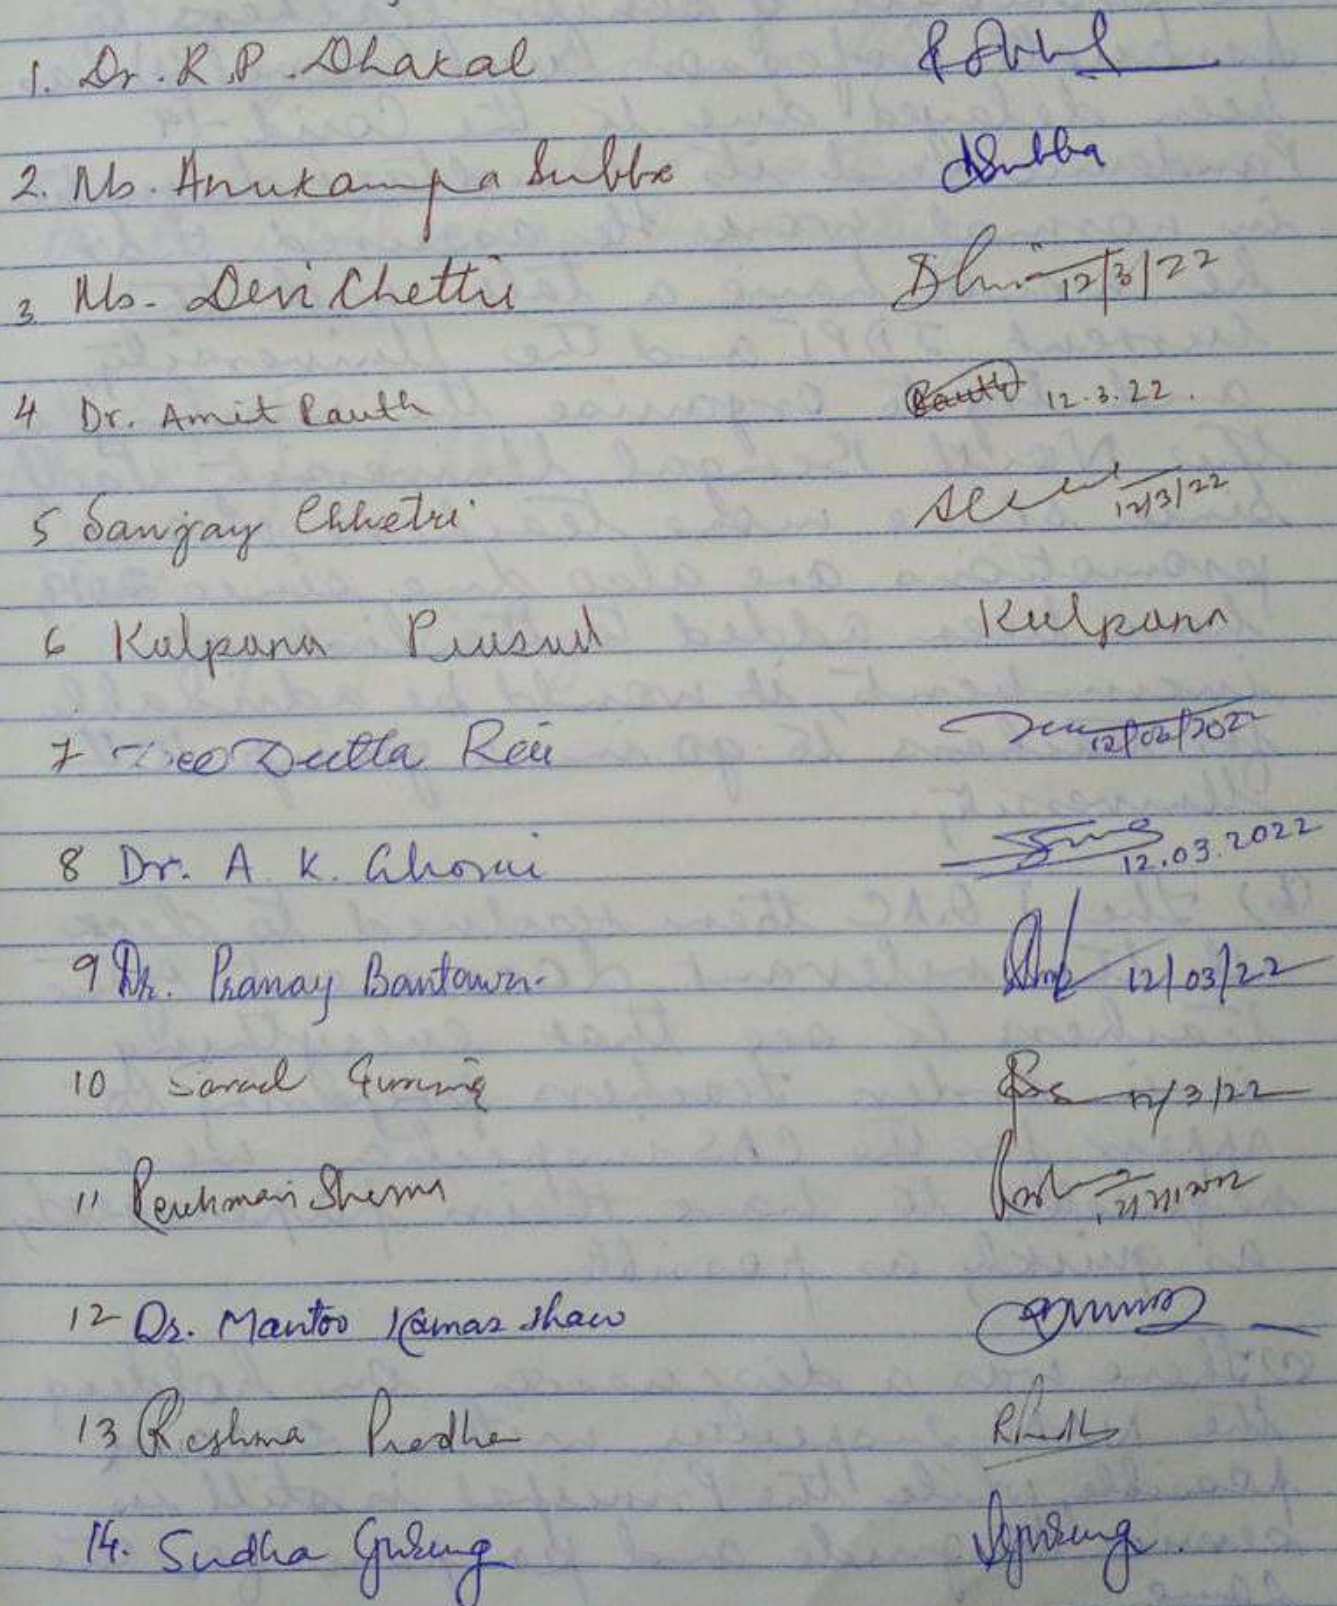 1. Dr. R.P. Dhakal
2. Ms. Anukampa Subba dSubba
3 Ms. Devi Chettri 12/3/22
4 Dr. Amit Rauth Rauth 12.3.22.
5 Sanjay Chhetri 12/3/22
6 Kalpana Prasad Kalpana
7 Deo Dutta Rai 12/03/2022
8 Dr. A. K. Ghorai 12.03.2022
9 Dr. Pranay Bantawa 12/03/22
10 Sarad Gurung 12/3/22
11 Rewhman Sharma
12 Dr. Mantoo Kumar Shaw
13 Reshma Pradhan
14. Sudha Gurung Sgurung.